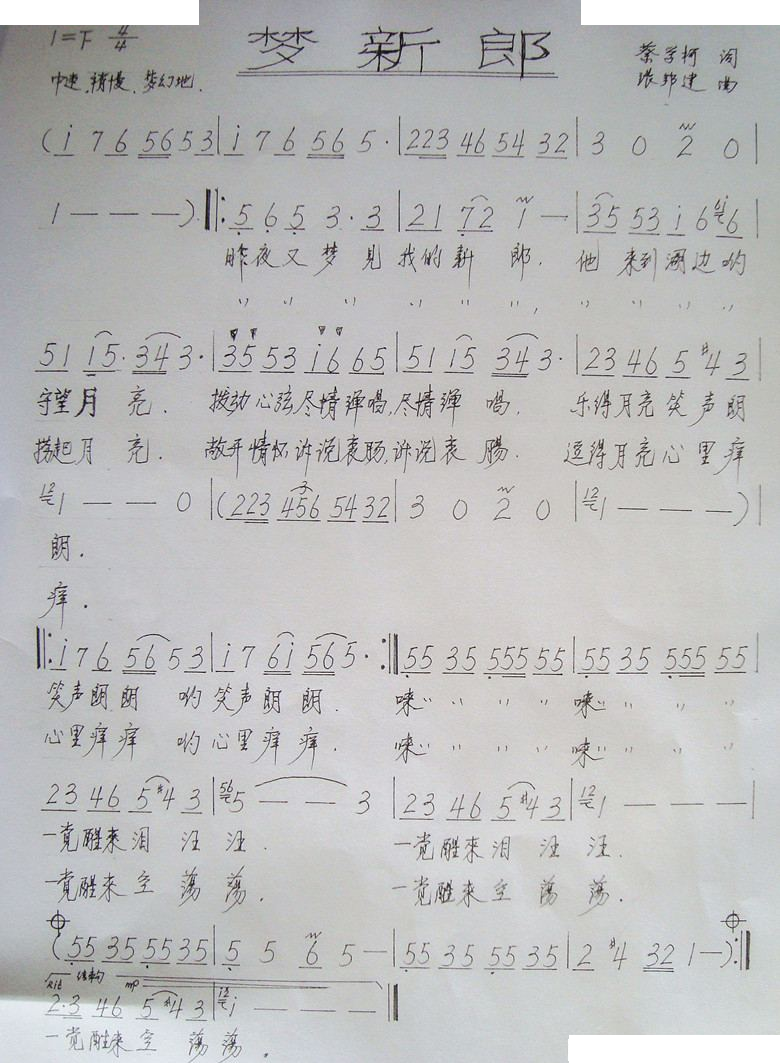 1=F 4/4 梦新郎 蔡学柯 词
中速、稍慢、梦幻地. 张邦建 曲
(i 7 6 56 5 3 | i 7 6 56 5 · | 223 46 54 32 | 3 0 2 0 |
1 — — — ) ‖: 5 6 5 3 · 3 | 21 72 1 — | 35 53 i 6 6 |
昨夜又梦见我的新郎. 他来到湖边哟
" " " " " " ", " " " " "
51 i5 · 34 3 · | 35 53 i6 65 | 51 i5 34 3 · | 23 46 5 #4 3 |
守望月亮. 拨动心弦尽情弹唱,尽情弹唱. 乐得月亮笑声朗
捞起月亮. 敞开情怀诉说衷肠,诉说衷肠. 逗得月亮心里痒
12 1 — — 0 | (223 3 456 54 32 | 3 0 2 0 | 12 1 — — — )
朗.
痒.
‖: i 7 6 56 5 3 | i 7 6i 56 5 · :‖ 55 35 555 55 | 55 35 555 55 |
笑声朗朗 哟笑声朗朗. 唻" " " " 唻" " " "
心里痒痒 哟心里痒痒. 唻" " " " 唻" " " "
23 46 5 #4 3 | 56 5 — — 3 | 23 46 5 #4 3 | 12 1 — — — |
一觉醒来泪汪汪. 一觉醒来泪汪汪.
一觉醒来空荡荡. 一觉醒来空荡荡.
(55 35 55 35 | 5 5 6 5 — | 55 35 55 35 | 2 #4 32 1 — ) :‖
Rit 结束句 mp
2·3 46 5 #4 3 | i — — — ‖
一觉醒来空荡荡.